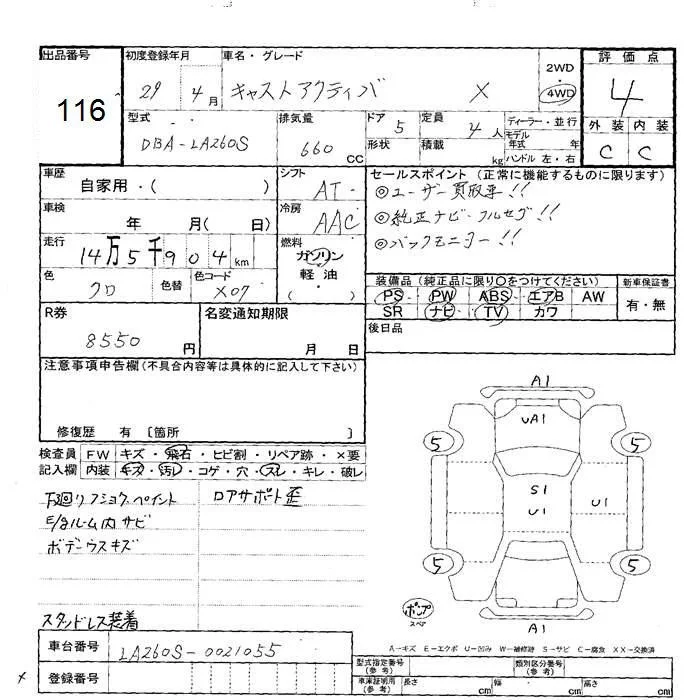 出品番号
116
初度登録年月
29年 4月
車名・グレード
キャストアクティバ X
2WD
・
4WD
評価点
4
外装 内装
C C
型式
DBA-LA260S
排気量
660 CC
ドア 5
形状
定員 4人
積載 kg
ディーラー・並行
モデル年式 年
ハンドル 左・右
車歴
自家用・( )
シフト
AT
車検
年 月( 日)
冷房
AAC
走行
14万5千904km
燃料
ガソリン
軽油
( ・ )
色
クロ
色替
色コード
X07
セールスポイント(正常に機能するものに限ります)
◎ユーザー買取車!!
◎純正ナビ・フルセグ!!
◎バックモニター!!
装備品(純正品に限り〇をつけてください)
PS・PW・ABS・エアB・AW
SR・ナビ・TV・カワ
新車保証書
有・無
後日品
R券
8550円
名変通知期限
月 日
注意事項申告欄(不具合内容等は具体的に記入して下さい)
修復歴 有〔箇所 〕
検査員記入欄
FW キズ・飛石・ヒビ割・リペア跡・×要
内装 キズ・汚レ・コゲ・穴・スレ・キレ・破レ
下廻リフショク、ペイント
E/gルーム内サビ
ボデーウスキズ
スタッドレス装着
ロアサポート歪
A1
UA1
5 5
S1
U1 U1
5 5
ポンプ
スペア
A1
A-キズ E-エクボ U-凹み W-補修跡 S-サビ C-腐食 XX-交換済
車台番号
LA260S-0021055
登録番号
型式指定番号(参考)
類別区分番号(参考)
車庫証明用(参考)
長さ cm
幅 cm
高さ cm